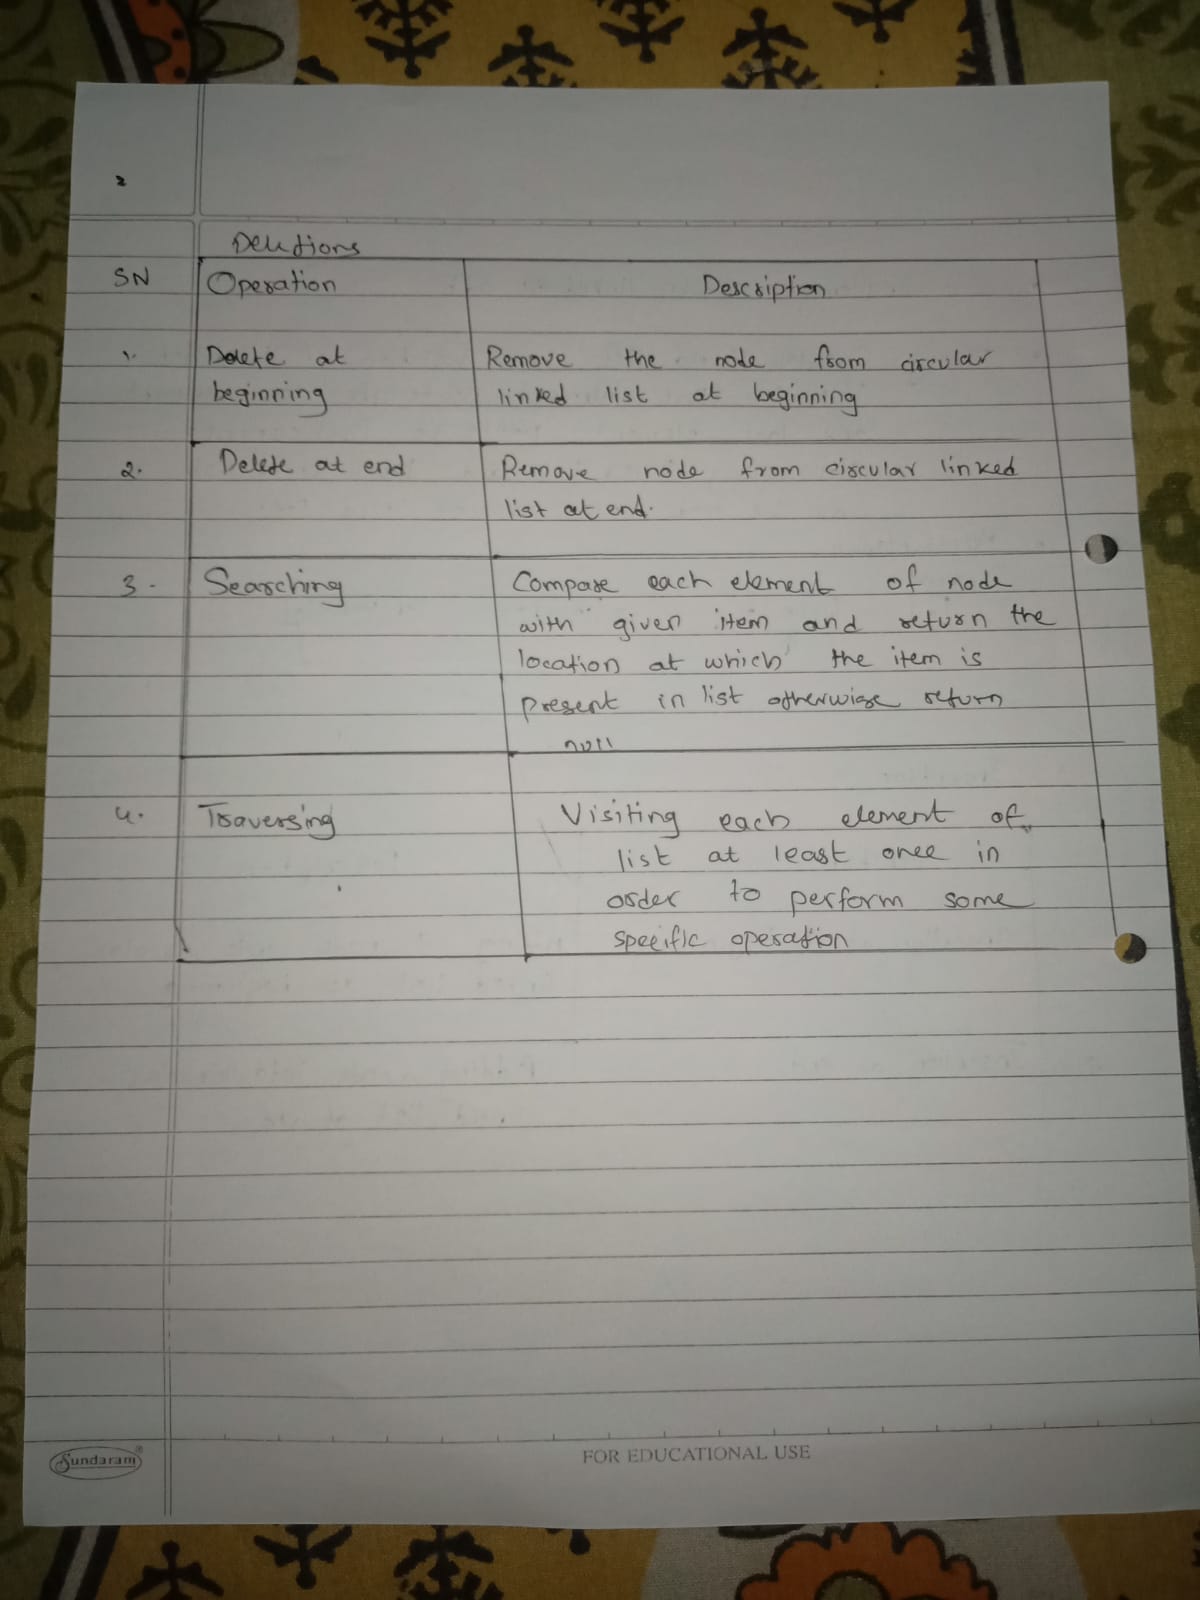 2
Deletions
SN Operation Description
1. Delete at Remove the node from circular
beginning linked list at beginning
2. Delete at end Remove node from circular linked
list at end.
3. Searching Compare each element of node
with given item and return the
location at which the item is
present in list otherwise return
null
4. Traversing Visiting each element of
list at least once in
order to perform some
specific operation
Sundaram®
FOR EDUCATIONAL USE